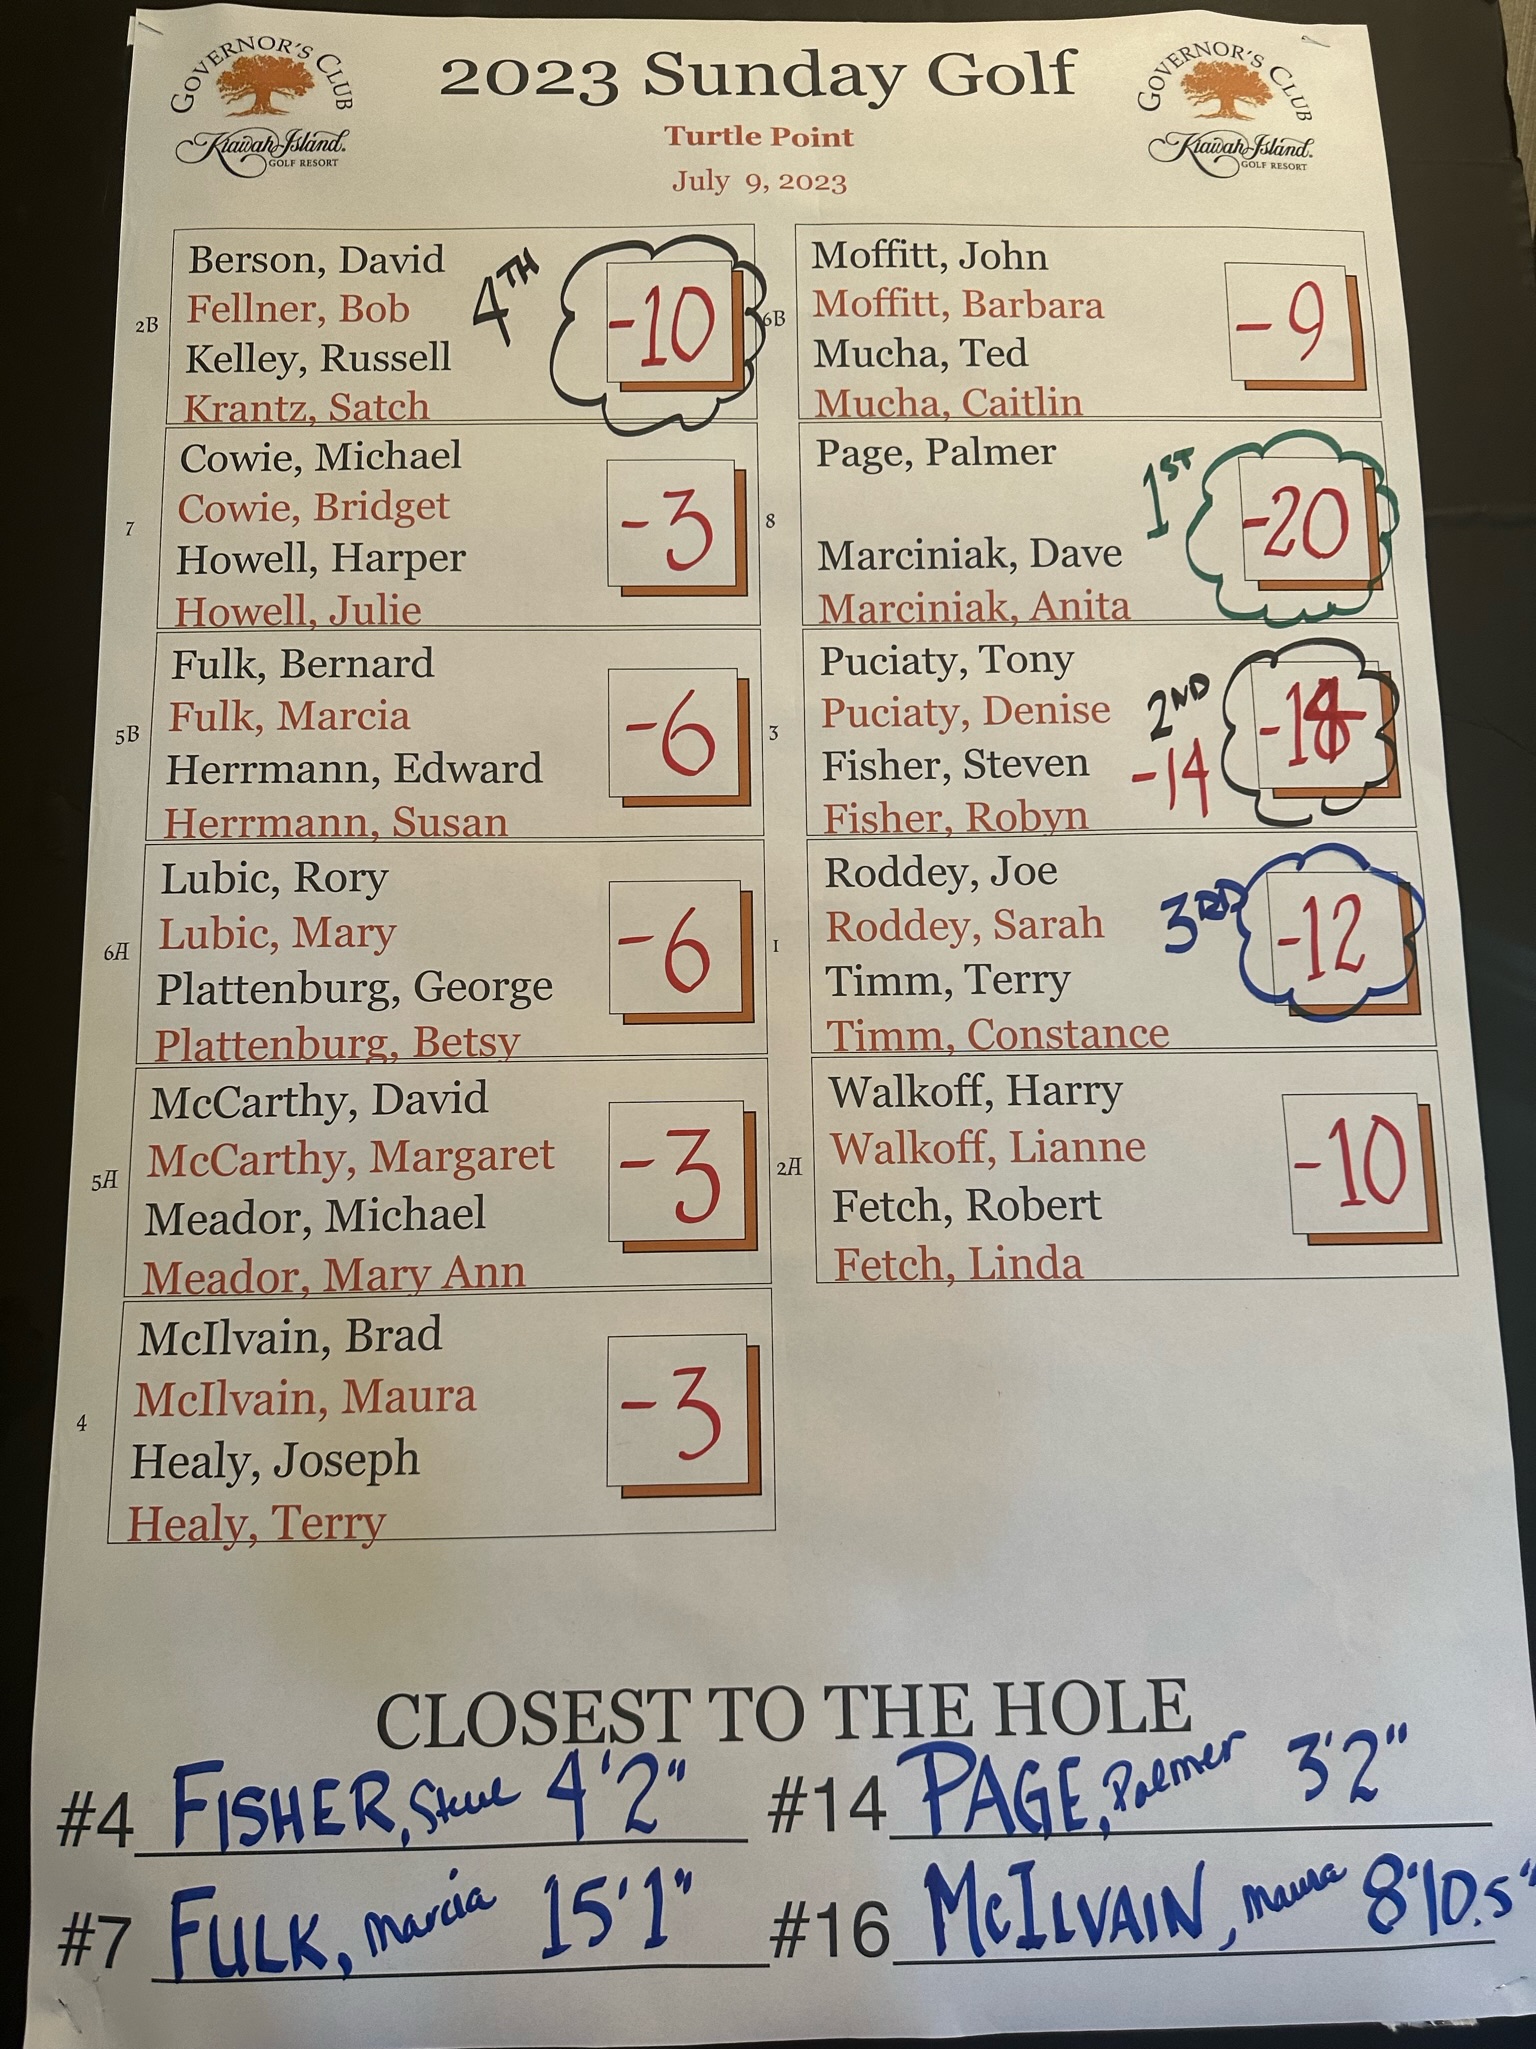 GOVERNOR'S CLUB
Kiawah Island.
GOLF RESORT
2023 Sunday Golf
Turtle Point
July 9, 2023
GOVERNOR'S CLUB
Kiawah Island.
GOLF RESORT
2B
Berson, David
Fellner, Bob
Kelley, Russell
Krantz, Satch
4TH
-10
7
Cowie, Michael
Cowie, Bridget
Howell, Harper
Howell, Julie
-3
5B
Fulk, Bernard
Fulk, Marcia
Herrmann, Edward
Herrmann, Susan
-6
6A
Lubic, Rory
Lubic, Mary
Plattenburg, George
Plattenburg, Betsy
-6
5A
McCarthy, David
McCarthy, Margaret
Meador, Michael
Meador, Mary Ann
-3
4
McIlvain, Brad
McIlvain, Maura
Healy, Joseph
Healy, Terry
-3
6B
Moffitt, John
Moffitt, Barbara
Mucha, Ted
Mucha, Caitlin
-9
8
Page, Palmer
Marciniak, Dave
Marciniak, Anita
1ST
-20
3
Puciaty, Tony
Puciaty, Denise
Fisher, Steven
Fisher, Robyn
2ND
-14
-14
1
Roddey, Joe
Roddey, Sarah
Timm, Terry
Timm, Constance
3RD
-12
2A
Walkoff, Harry
Walkoff, Lianne
Fetch, Robert
Fetch, Linda
-10
CLOSEST TO THE HOLE
#4 FISHER, Steve 4'2"
#14 PAGE, Palmer 3'2"
#7 FULK, Marcia 15'1"
#16 McILVAIN, Maura 8'10.5"